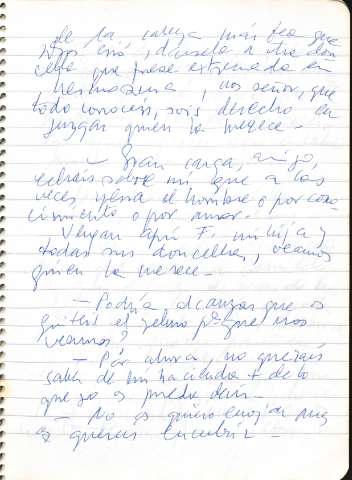 de la cabeza más fea que
esté, dársela a una don
cella que fuese extremada en
hermosura, vos señor, que
todo conocéis, sois derecho en
juzgar quien la merece.
— Gran carga, amigo,
echáis sobre mí que a las
veces yerra el hombre o por cono
cimiento o por amor.
Vengan aquí F. mi hija y
todas sus doncellas, veamos
quien la merece.
— Podría alcanzar que os
quitéis el yelmo pª que nos
veamos?
— Por ahora, no queráis
saber de mi hacienda + de lo
que yo os pueda decir.
— No os quiero enojar pues
os queréis encubrir —